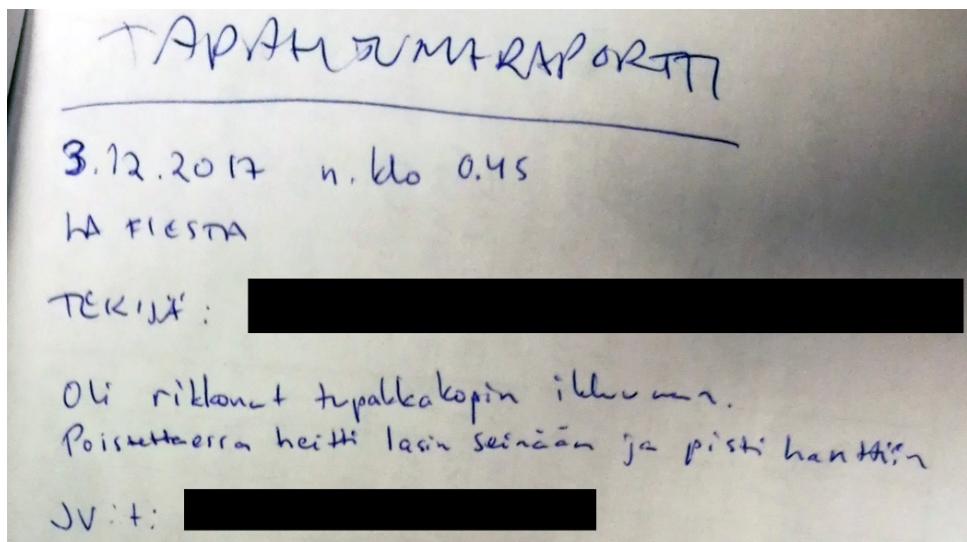 TAPAHTUMARAPORTTI
3.12.2017 n. klo 0.45
LA FIESTA
TEKIJÄ:
Oli rikkonut tupakkakopin ikkunan.
Poistettaessa heitti lasin seinään ja pisti hanttiin
JV:t: